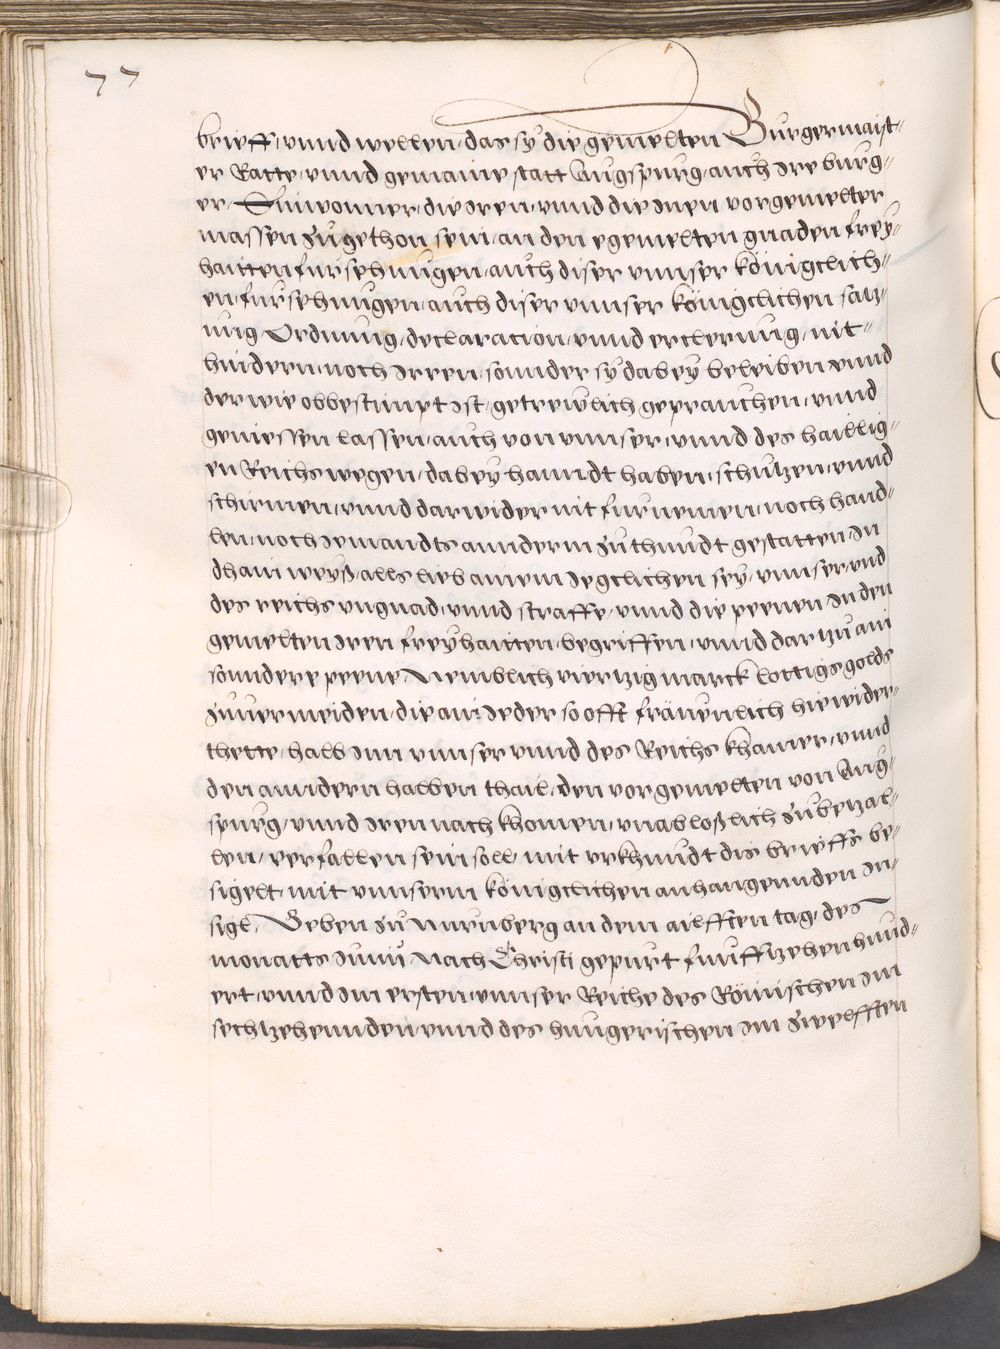 77
brieff, vnnd wellen, das sÿ die gemelten Burgermaist=
er Ratte, vnnd gemaine statt Augspurg, auch Ire burg=
er, Einwonner, die Iren, vnnd die Inen vorgemelter
massen zugethon sein, an den egemelten gnaden freÿ=
haitten fursehnugen, auch diser vnnser königclich=
en, fursehnugen, auch diser vnnser königclichen satz=
ung Ordnung, declaration, vnnd erclerung, nit=
hindern, noch Irren, sonnder sÿ dabeÿ beleiben vnnd
der wie obbestimpt ist, getrewlich geprauchen, vnnd
geniessen lassen, auch von vnnser, vnnd des haillig=
en Reichs wegen, dabeÿ hanndt haben, schutzen, vnnd
schirmen, vnnd darwider nit furnemen, noch hand=
len, noch Iemandts annderm zuthundt gestatten, In
dhain weÿß, alls lieb ainem Iegclichen seÿ, vnnser, vnd
des reichs vngnad, vnnd straffe, vnnd die peenen, In den
gemelten Iren freÿhaitten, begriffen, vnnd dartzu ain
sonndere peene, Nemblich viertzig marck lottigs golds
zuuermeiden, die ain Ieder so offt fräuenlich hiewider=
thette, halb Inn vnnser vnnd des Reichs khamer, vnnd
den anndern halben thail, den vorgemelten von Aug=
spurg, vnnd Iren nachkhomen, vnabloßlich zubezal=
len, verfallen sein soll, mit vrkhundt dis brieffs be=
sigelt, mit vnnserm königclichen anhangennden In=
sigl, Geben zu Nurnberg an dem ailfften tag, des
monatts Iunii, Nach Christi gepurt funffizehenhund=
ert, vnnd Im ersten, vnnser Reiche des Römischen Im
sechtzehennden vnnd des hungerischen Im zwelfften